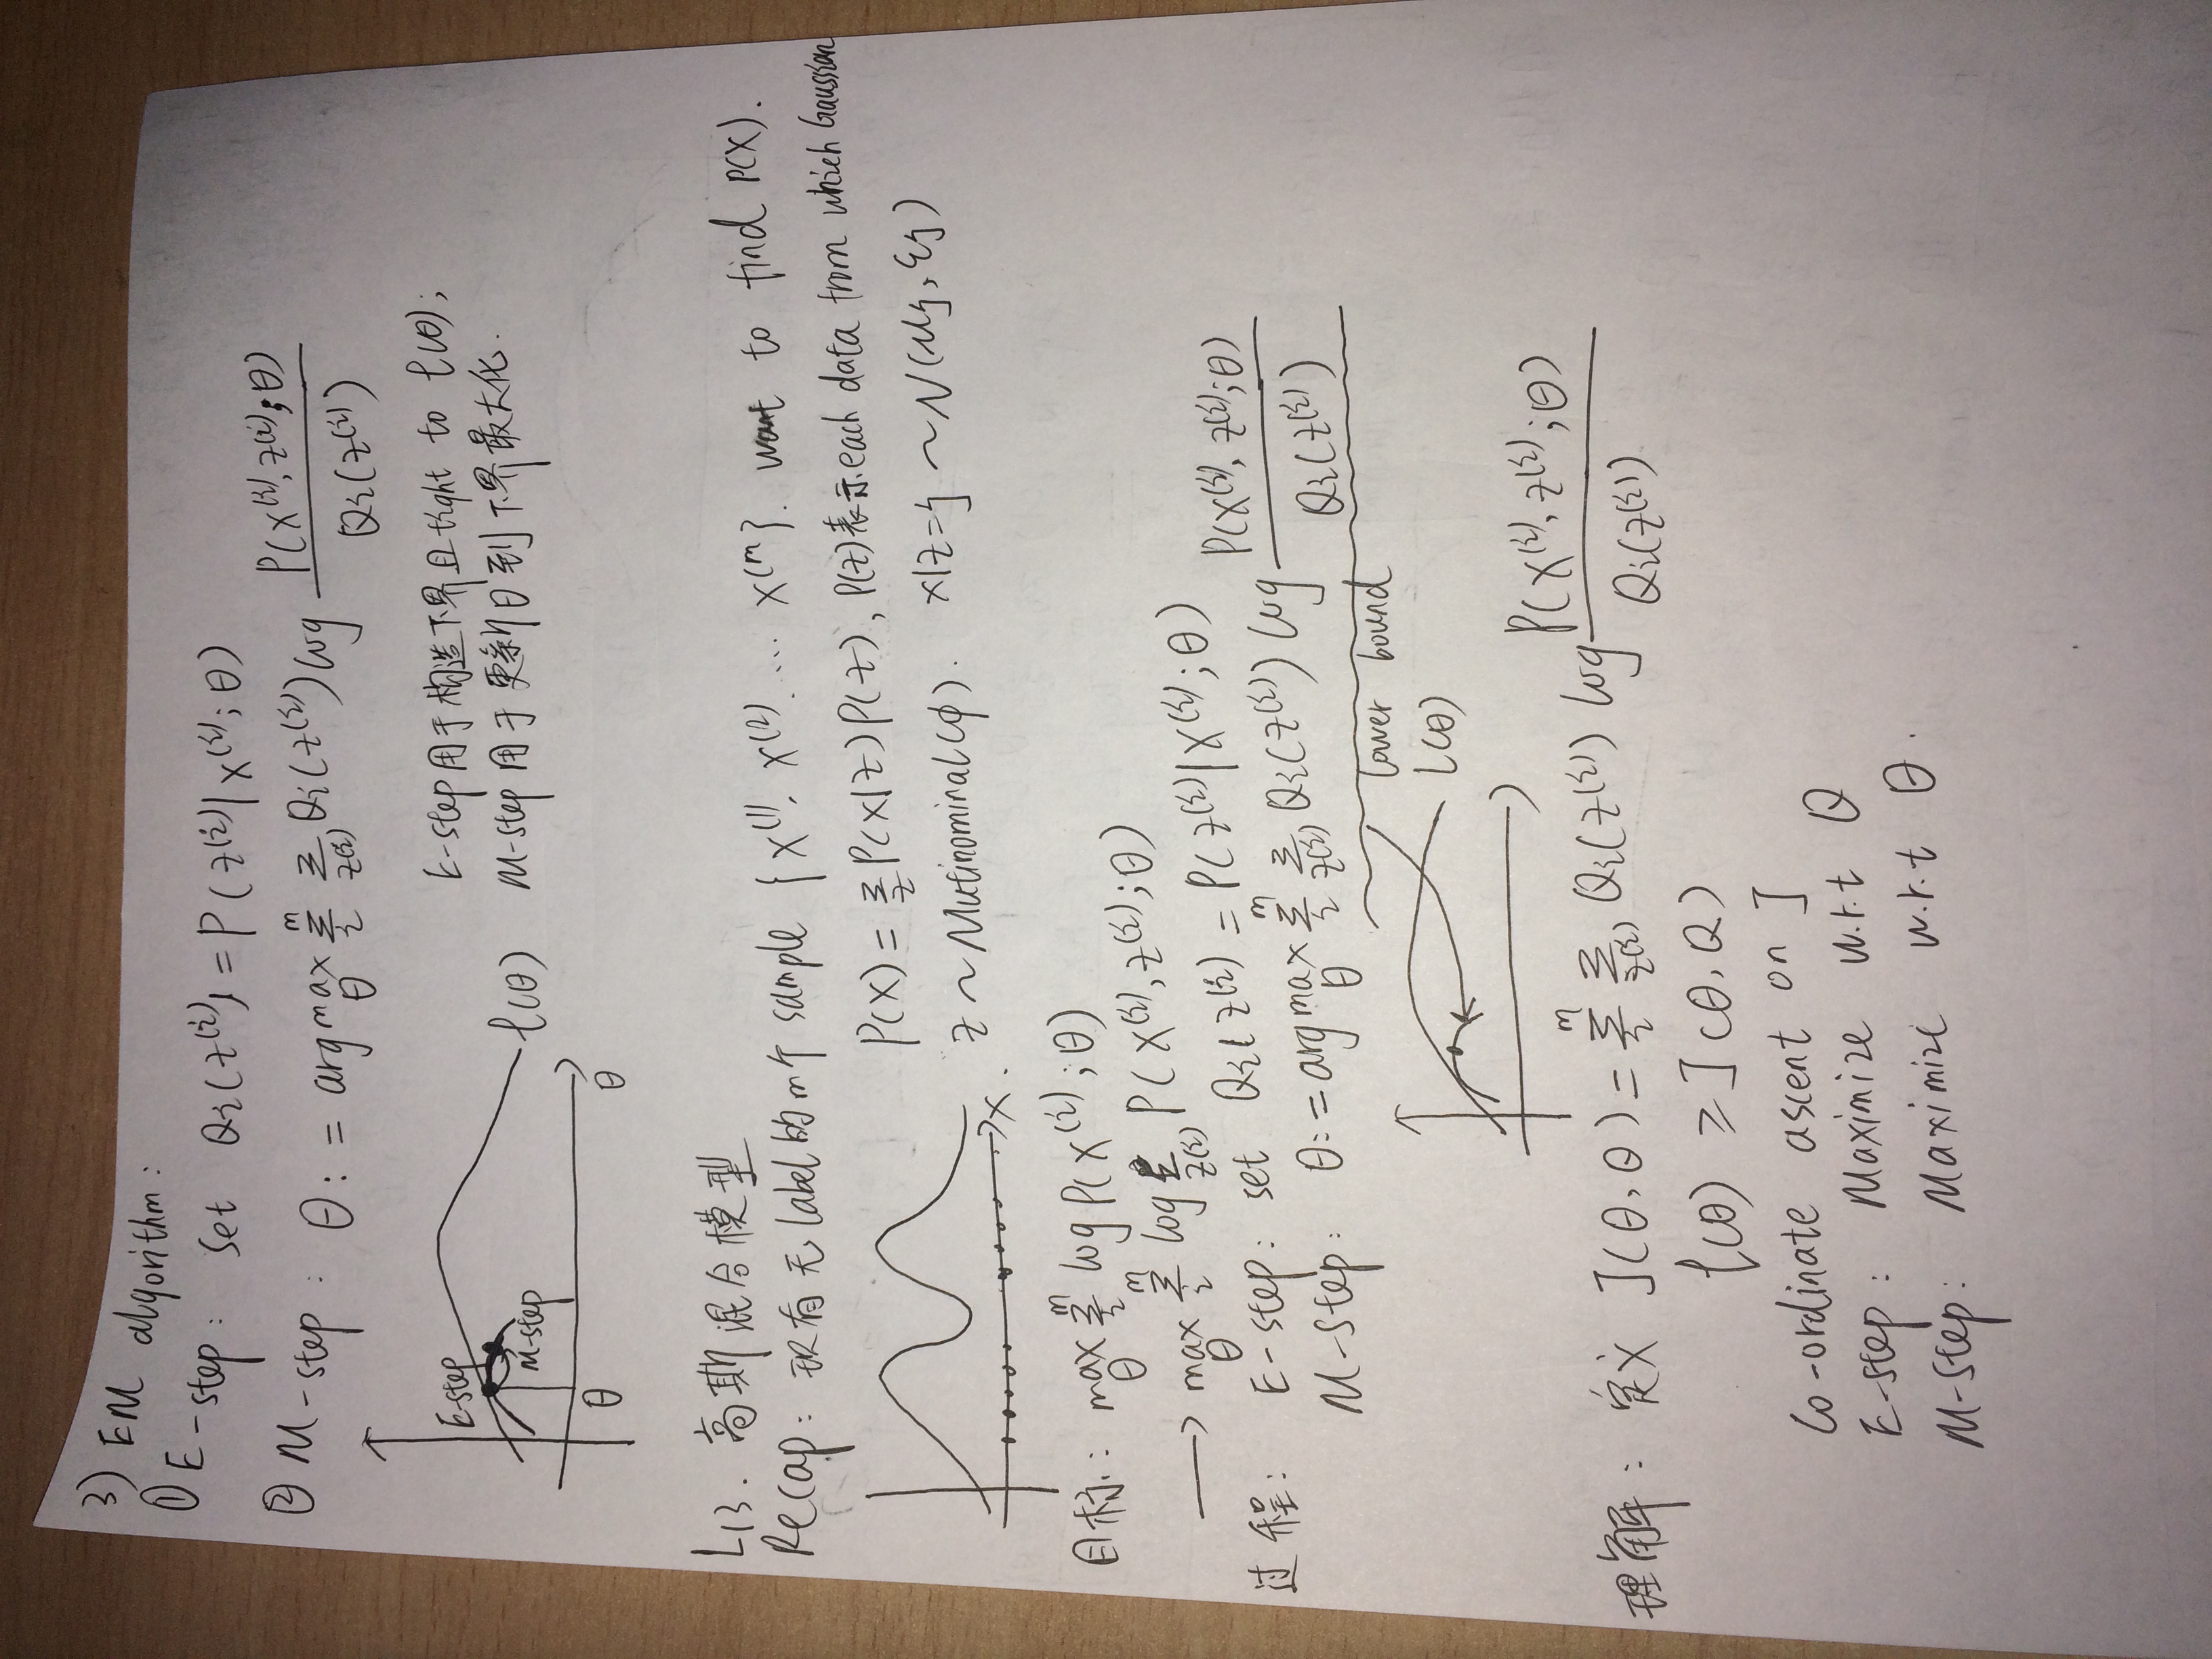 3) EM algorithm:
① E-step: set Qi(z^(i)) = P(z^(i)|x^(i);θ)
② M-step: θ := argmax_θ Σ_i^m Σ_z(i) Qi(z^(i)) log P(x^(i), z^(i);θ) / Qi(z^(i))
E-step
M-step
l(θ)
θ
θ
E-step用于构造下界且tight to l(θ);
M-step用于更新θ到下界最大化.
L13. 高斯混合模型
Recap: 现有无label的m个 sample {x^(1), x^(2) .... x^(m)}. want to find P(x).
P(x) = Σ_z P(x|z)P(z), P(z)表示each data from which Gaussian
z ~ Mutinominal(φ). x|z=j ~ N(μj, Σj)
x.
目标: max_θ Σ_i^m log P(x^(i);θ)
→ max_θ Σ_i^m log Σ_z(i) P(x^(i), z^(i);θ)
过程: E-step: set Qi(z^(i)) = P(z^(i)|x^(i);θ)
M-step: θ := argmax_θ Σ_i^m Σ_z(i) Qi(z^(i)) log P(x^(i), z^(i);θ) / Qi(z^(i))
lower bound
l(θ)
理解: 定义 J(θ, Q) = Σ_i^m Σ_z(i) Qi(z^(i)) log P(x^(i), z^(i);θ) / Qi(z^(i))
l(θ) ≥ J(θ, Q)
Co-ordinate ascent on J
E-step: Maximize w.r.t Q
M-step: Maximize w.r.t θ.